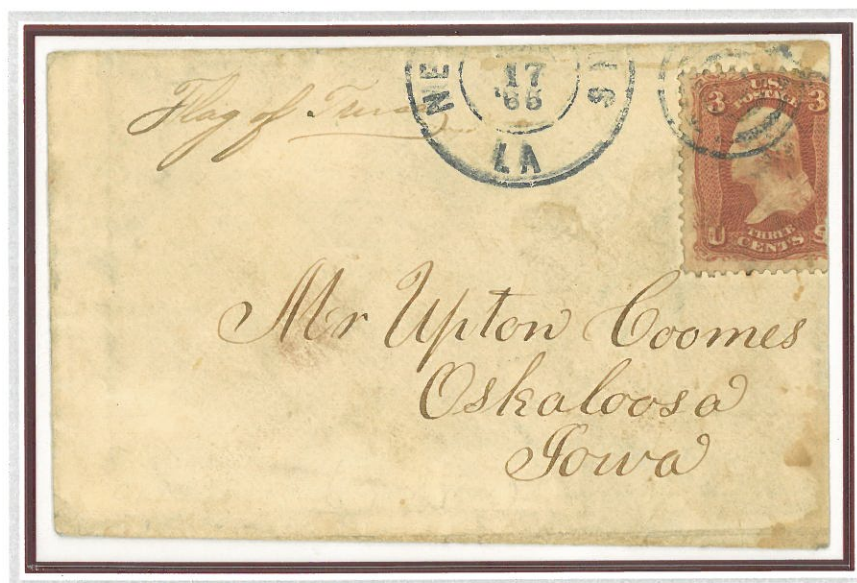 Flag of Truce
NE
17
'65
S
LA
3 U.S. 3
POSTAGE
THREE
U CENTS S
Mr Upton Coomes
Oskaloosa
Iowa